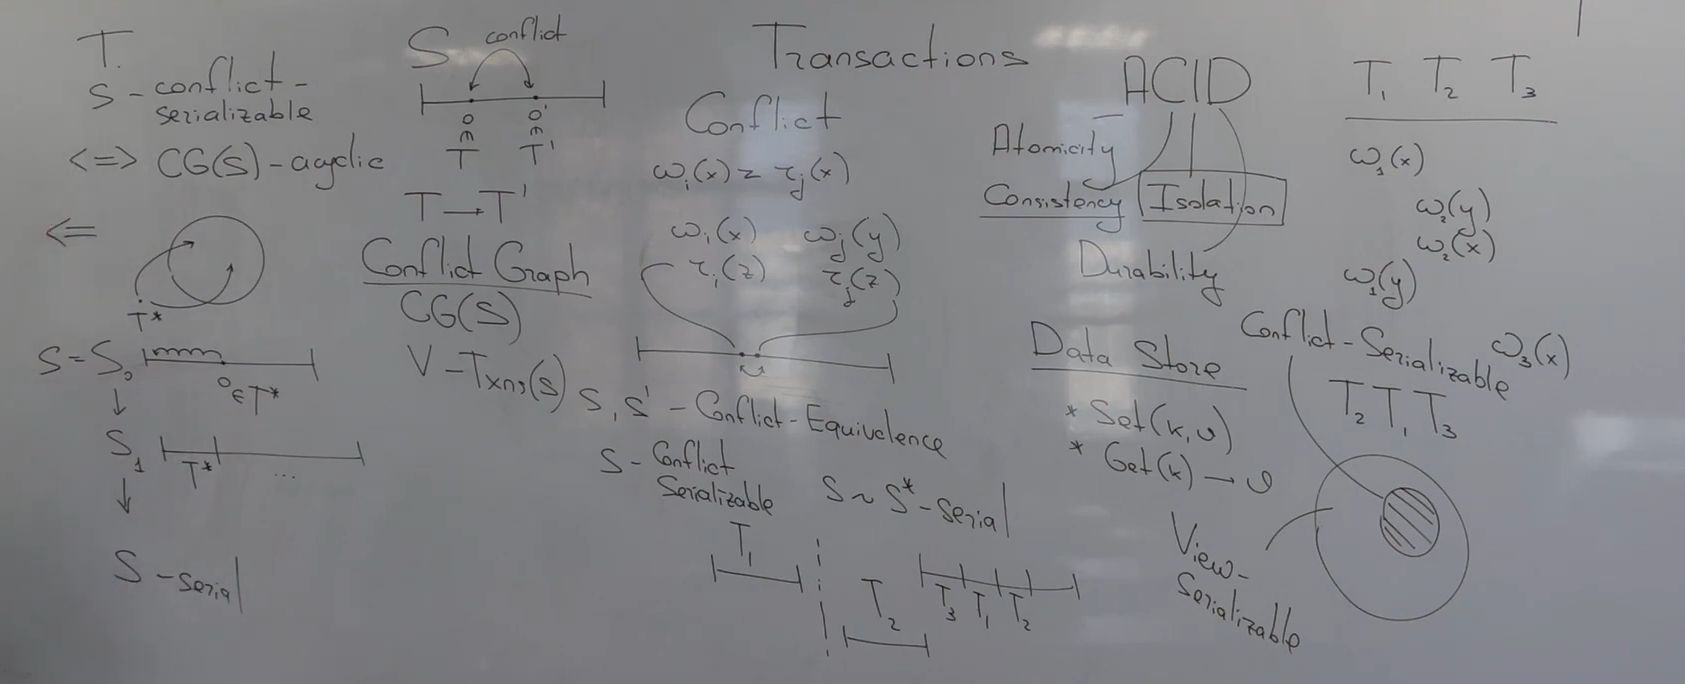 T.
S - conflict-
serializable
<=> CG(S) - acyclic
<=
T*
S = S₀
o ∈ T*
↓
S₁
T*
...
↓
S - serial
S conflict
o o'
∈ ∈
T T'
T → T'
Conflict Graph
CG(S)
V - Txns(S)
Transactions
Conflict
ω_i(x) z τ_j(x)
ω_i(x) ω_j(y)
τ_i(z) τ_j(z)
S, S' - Conflict-Equivalence
S - Conflict
Serializable
S ~ S* - serial
T₁
T₂
T₃ T₁ T₂
ACID
Atomicity
Consistency Isolation
Durability
Data Store
* Set(k, v)
* Get(k) → v
T₁ T₂ T₃
ω₁(x)
ω₂(y)
ω₂(x)
ω₁(y)
ω₃(x)
Conflict-Serializable
T₂ T₁ T₃
View-
Serializable